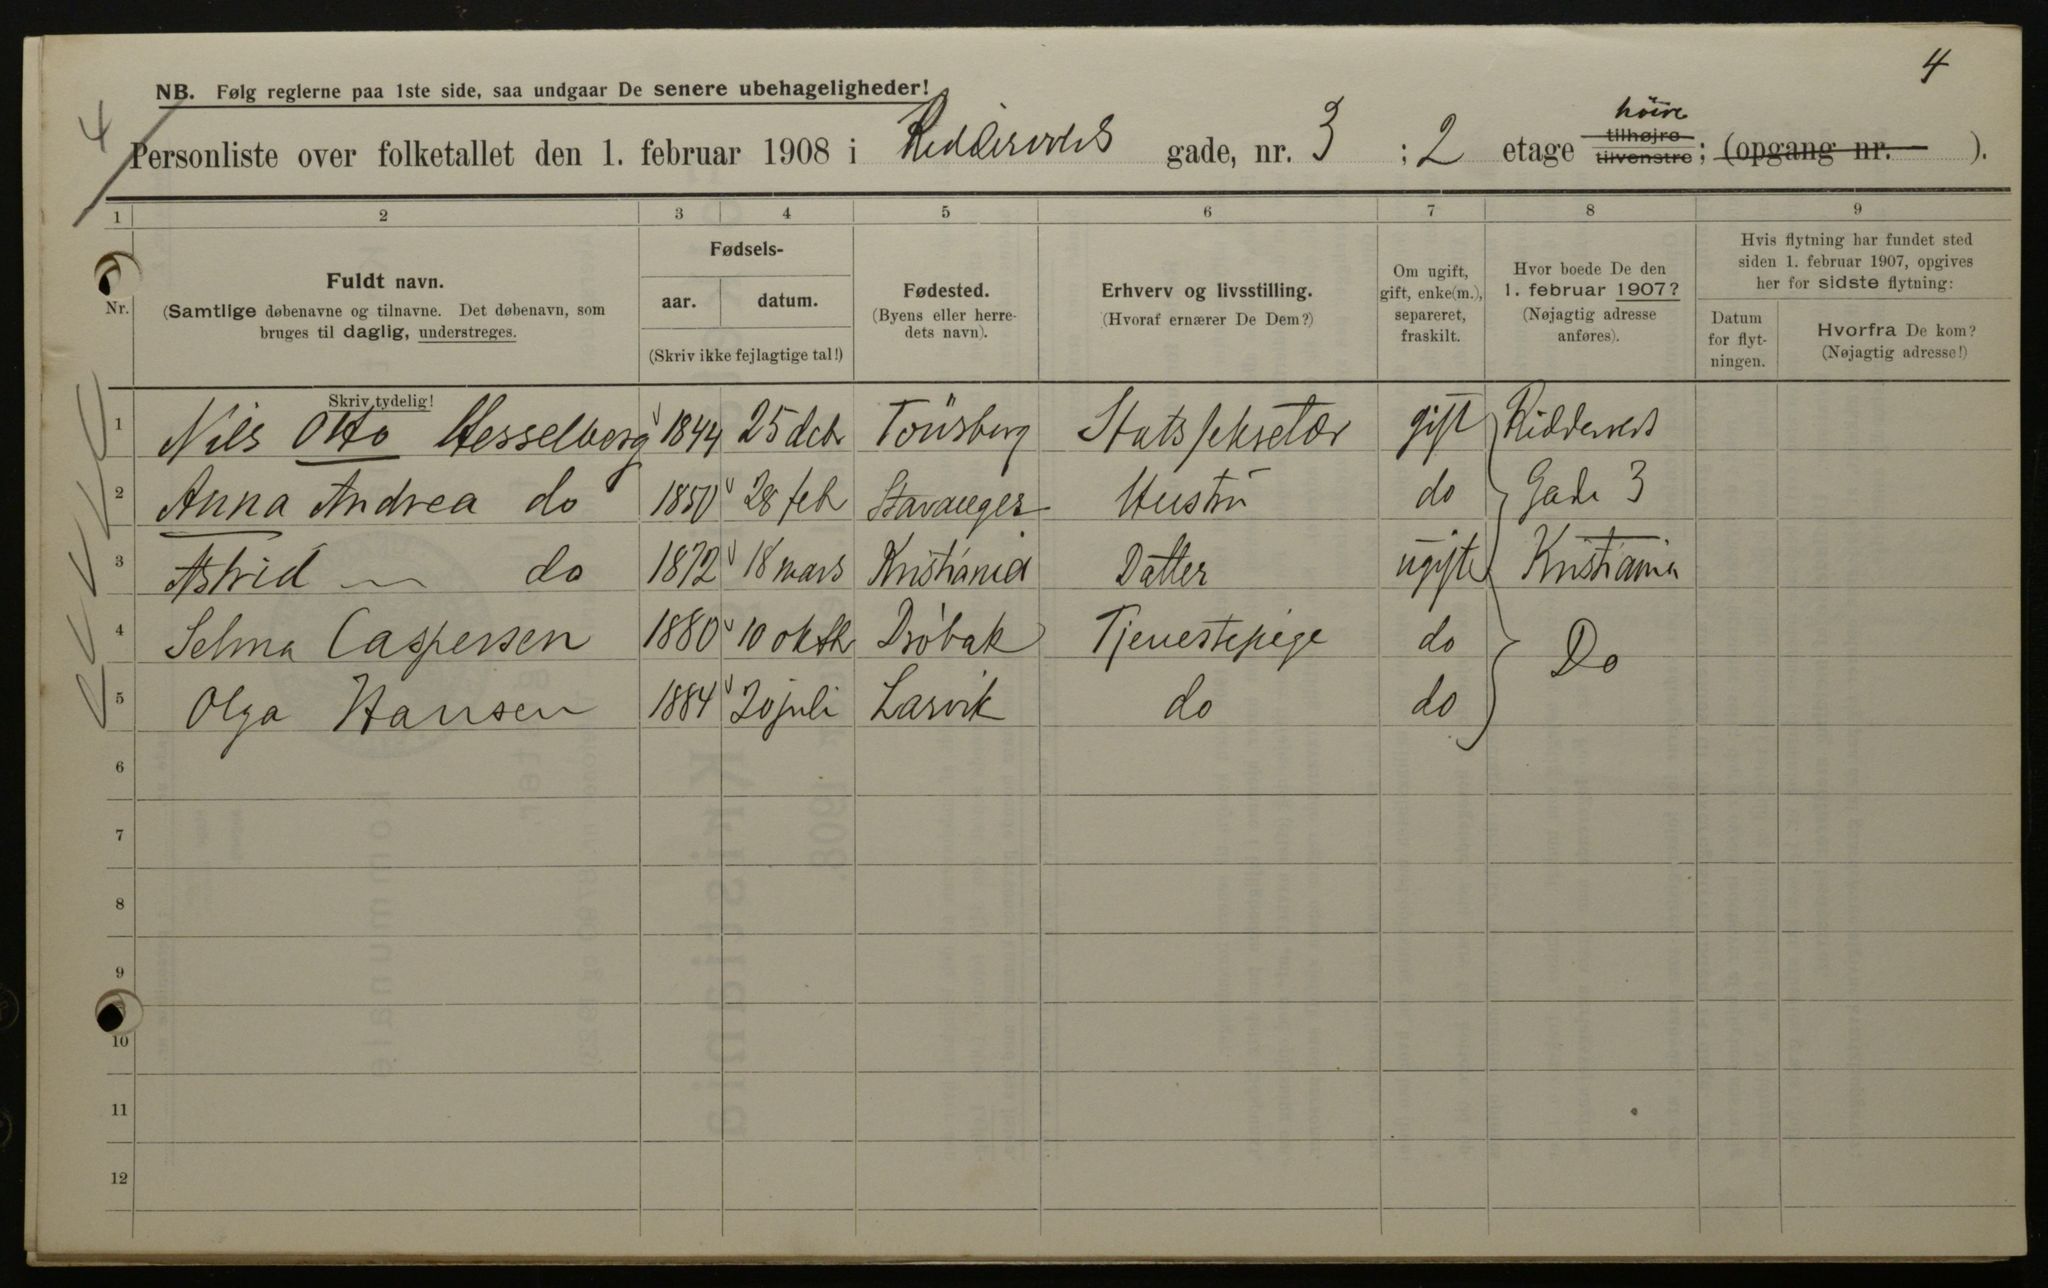 4
NB. Følg reglerne paa 1ste side, saa undgaar De senere ubehageligheder!
4
høire
Personliste over folketallet den 1. februar 1908 i Riddervolds gade, nr. 3 ; 2 etage tilhøjre tilvenstre ; (opgang nr. ).
1 2 3 4 5 6 7 8 9
Nr.
Fuldt navn.
(Samtlige døbenavne og tilnavne. Det døbenavn, som
bruges til daglig, understreges.
Skriv tydelig!
Fødsels-
aar. datum.
(Skriv ikke fejlagtige tal!)
Fødested.
(Byens eller herre-
dets navn).
Erhverv og livsstilling.
(Hvoraf ernærer De Dem?)
Om ugift,
gift, enke(m.),
separeret,
fraskilt.
Hvor boede De den
1. februar 1907?
(Nøjagtig adresse
anføres).
Hvis flytning har fundet sted
siden 1. februar 1907, opgives
her for sidste flytning:
Datum
for flyt-
ningen.
Hvorfra De kom?
(Nøjagtig adresse!)
1 Nils Otto Hesselberg 1844 25 dcbr Tönsberg Statssekretær gift Riddervolds
2 Anna Andrea do 1850 28 feb Stavanger Hustru do Gade 3
3 Astrid do 1872 18 mars Kristiania Datter ugift Kristiania
4 Selma Caspersen 1880 10 oktb Dröbak Tjenestepige do Do
5 Olga Hansen 1884 20 juli Larvik do do
6
7
8
9
10
11
12